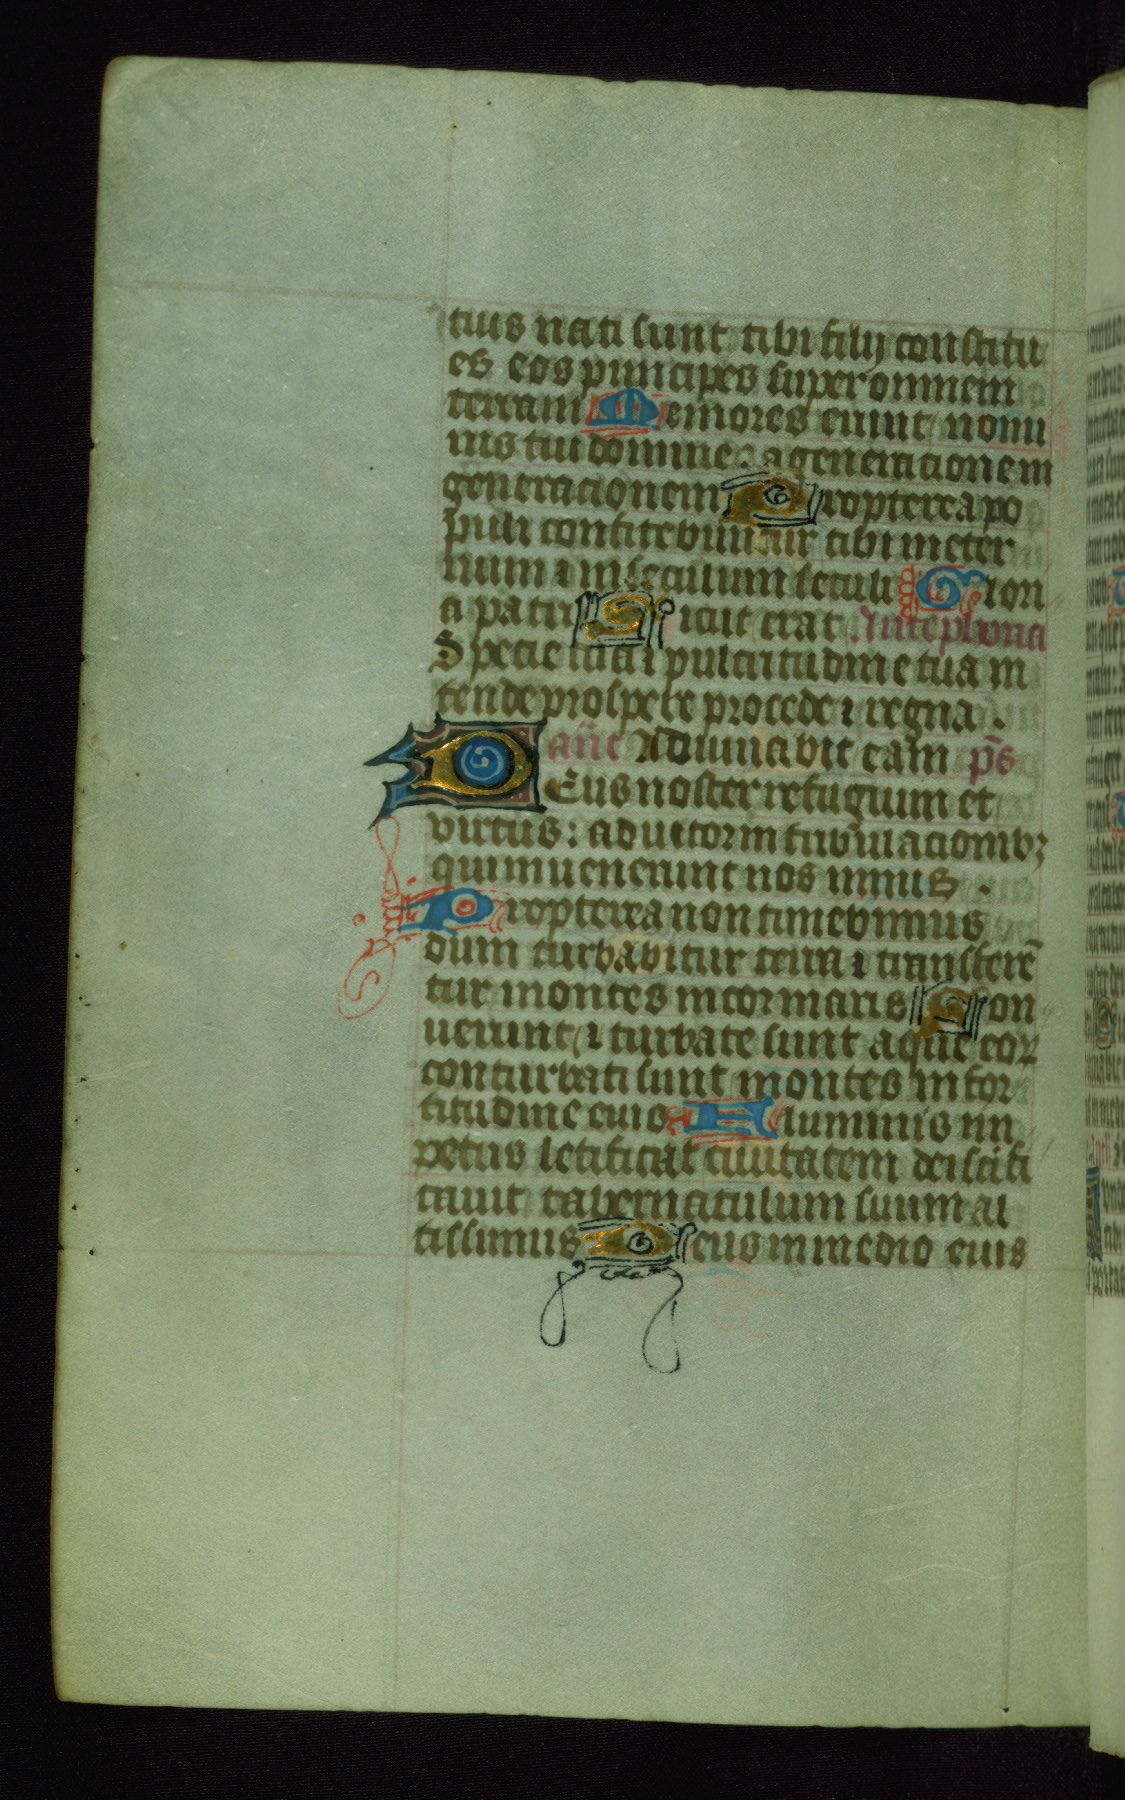 tuis nati sunt tibi filij constitu
es eos principes super omnem
terram Memores erunt nomi
nis tui domine: a generacionem
generacionem Propterea po
puli confitebuntur tibi in eter
num ⁊ in seculum seculi Glori
a patri Sicut erat Antephona
Specie tua ⁊ pulcritudine tua in
tende prospere procede ⁊ regna.
an̄t Adiuuabit eam ps̄
DEus noster refugium et
virtus: adiutor in tribulacionibꝫ
qui inuenerunt nos nimis.
Propterea non timebimus
dum turbabitur terra ⁊ transferē
tur montes in cor maris Son
uerunt ⁊ turbate sunt aque eoꝝ
conturbati sunt montes in for
titudine eius Fluminis im
petus letificat ciuitatem dei scīfi
cauit tabernaculum suum al
tissimus Deus in medio eius